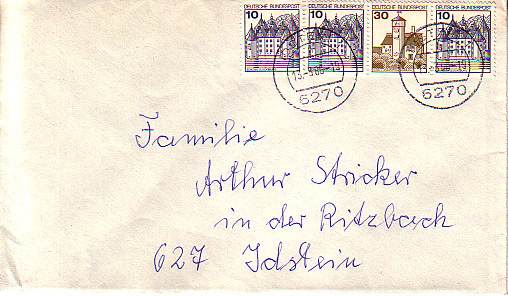 10 DEUTSCHE BUNDESPOST 10 DEUTSCHE BUNDESPOST 30 DEUTSCHE BUNDESPOST 10 DEUTSCHE BUNDESPOST
6270 6270
Familie
Arthur Stricker
in der Ritzbach
627 Idstein